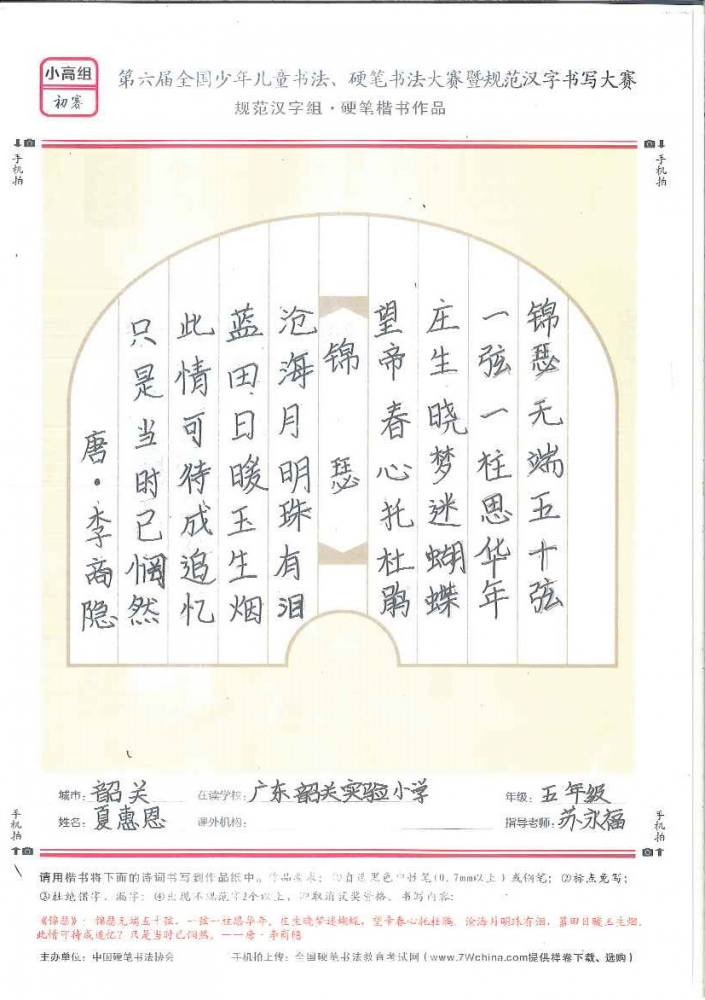 小高组
初赛
第六届全国少年儿童书法、硬笔书法大赛暨规范汉字书写大赛
规范汉字组·硬笔楷书作品
手机拍
手机拍
锦瑟无端五十弦
一弦一柱思华年
庄生晓梦迷蝴蝶
望帝春心托杜鹃
锦瑟
沧海月明珠有泪
蓝田日暖玉生烟
此情可待成追忆
只是当时已惘然
唐·李商隐
城市：韶关 在读学校：广东韶关实验小学 年级：五年级
姓名：夏惠恩 课外机构： 指导老师：苏永福
手机拍
手机拍
请用楷书将下面的诗词书写到作品纸中。作品要求：①自选黑色中性笔(0.7mm以上)或钢笔；②标点免写；
③杜绝错字、漏字；④出现不规范字2个以上，即取消获奖资格。书写内容：
《锦瑟》：锦瑟无端五十弦，一弦一柱思华年。庄生晓梦迷蝴蝶，望帝春心托杜鹃。沧海月明珠有泪，蓝田日暖玉生烟。
此情可待成追忆？只是当时已惘然。——唐·李商隐
主办单位：中国硬笔书法协会 手机拍上传：全国硬笔书法教育考试网(www.7Wchina.com提供样卷下载、选购)